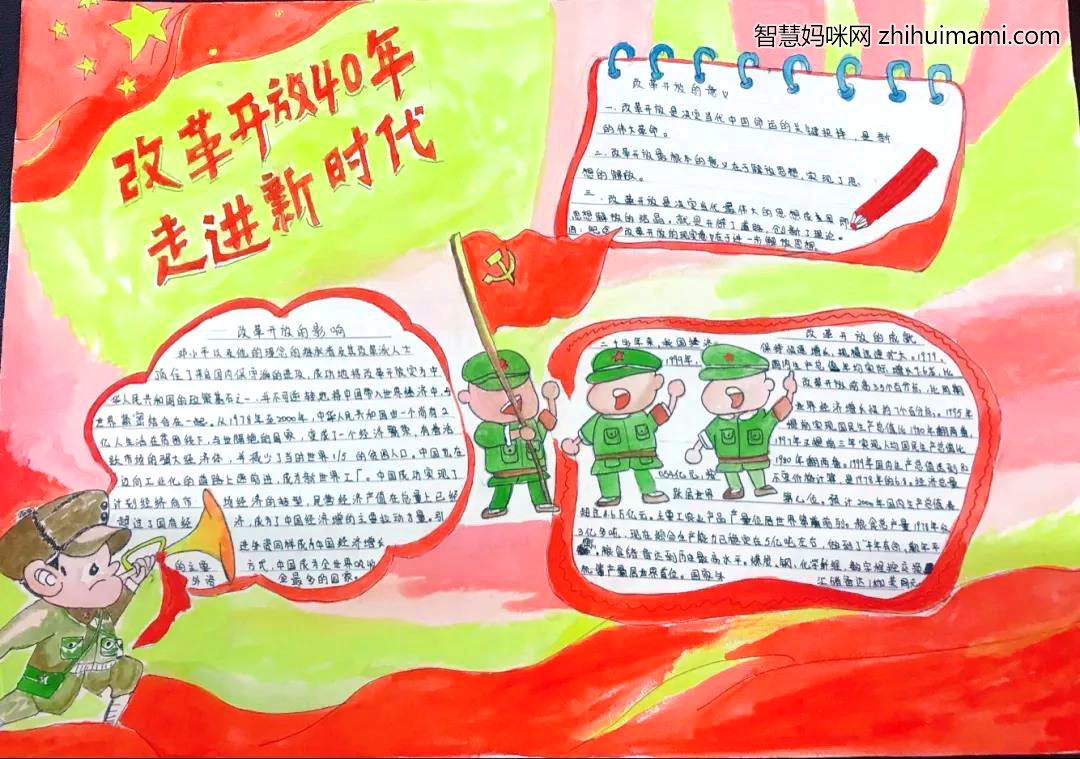 智慧妈咪网 zhihuimami.com
改革开放40年
走进新时代
改革开放的意义
一.改革开放是决定当代中国命运的关键抉择,是新
的伟大革命。
二.改革开放最根本的意义在于解放思想,实现了思
想的解放。
三.改革开放是决定当代最伟大的思想成果
思想解放的结晶。就是开辟了道路,创新了理论。
改革开放的现实意义在于进一步解放思想
一 改革开放的影响
邓小平以及他的理念的继承者及其改革派人士
顶住了来自国内保守派的
成功地将改革开放定为中
华人民共和国的政策基石之一.并不可逆转地将中国带入世界经济中.与
世界紧密结合在一起.从1978年至2000年,中华人民共和国由一个尚有2
亿人生活在贫困线下,与世隔绝的国家,变成了一个经济
有着活
跃市场的强大经济体,并减少了当时世界1/5的贫困人口。中国也在
迈向工业化的道路上
成为新世界工厂。中国成功实现了
计划经济向市场经济的转型,民营经济产值在总量上已经
超过了国有经济,成为了中国经济增的主要拉动力量。引
进外资同样成为中国经济增长
的主要方式,中国成为全世界吸收
外资金最多的国家。
改革开放的成就
二十多年来,我国经济保持高速增长,规模迅速扩大。1979
1999年,国内生产总值年均实际增长9.6%,比
改革开放前高3.5个百分点,比同期
世界经济增长
个百分点。1995年
提前实现国民生产总值比1980年翻两番,
1997年又提前三年实现人均国民生产总值比
1980年翻两番。1999年国内生产总值达到82
054亿元,按不变价格计算,是1978年的6.3倍。经济总量
跃居世界第七位。预计2000年国内生产总值
超过8.6万亿元。主要工农业产品产量位居世界
粮食总产量1978年仅
3亿多吨,现在粮食生产能力已稳定在5亿吨左右,做到了丰年有余,